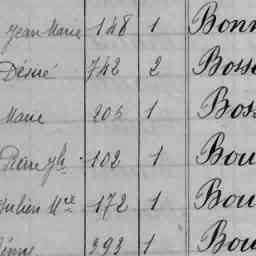 Jean Marie 148 1 Bonn
Désiré 742 2 Boss
Marie 206 1 Bos
Pierre Jh 102 1 Bou
Julien Mie 172 1 Bou
393 1 Bou